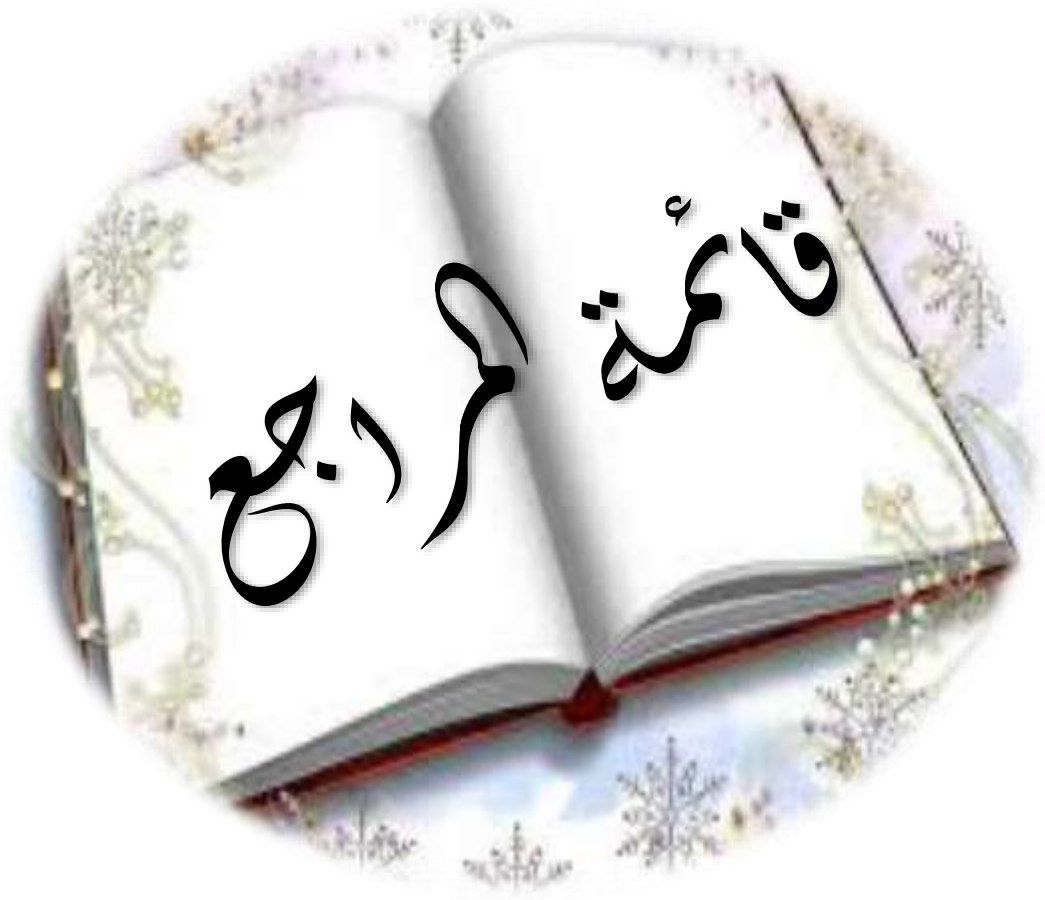 قائمة المراجع